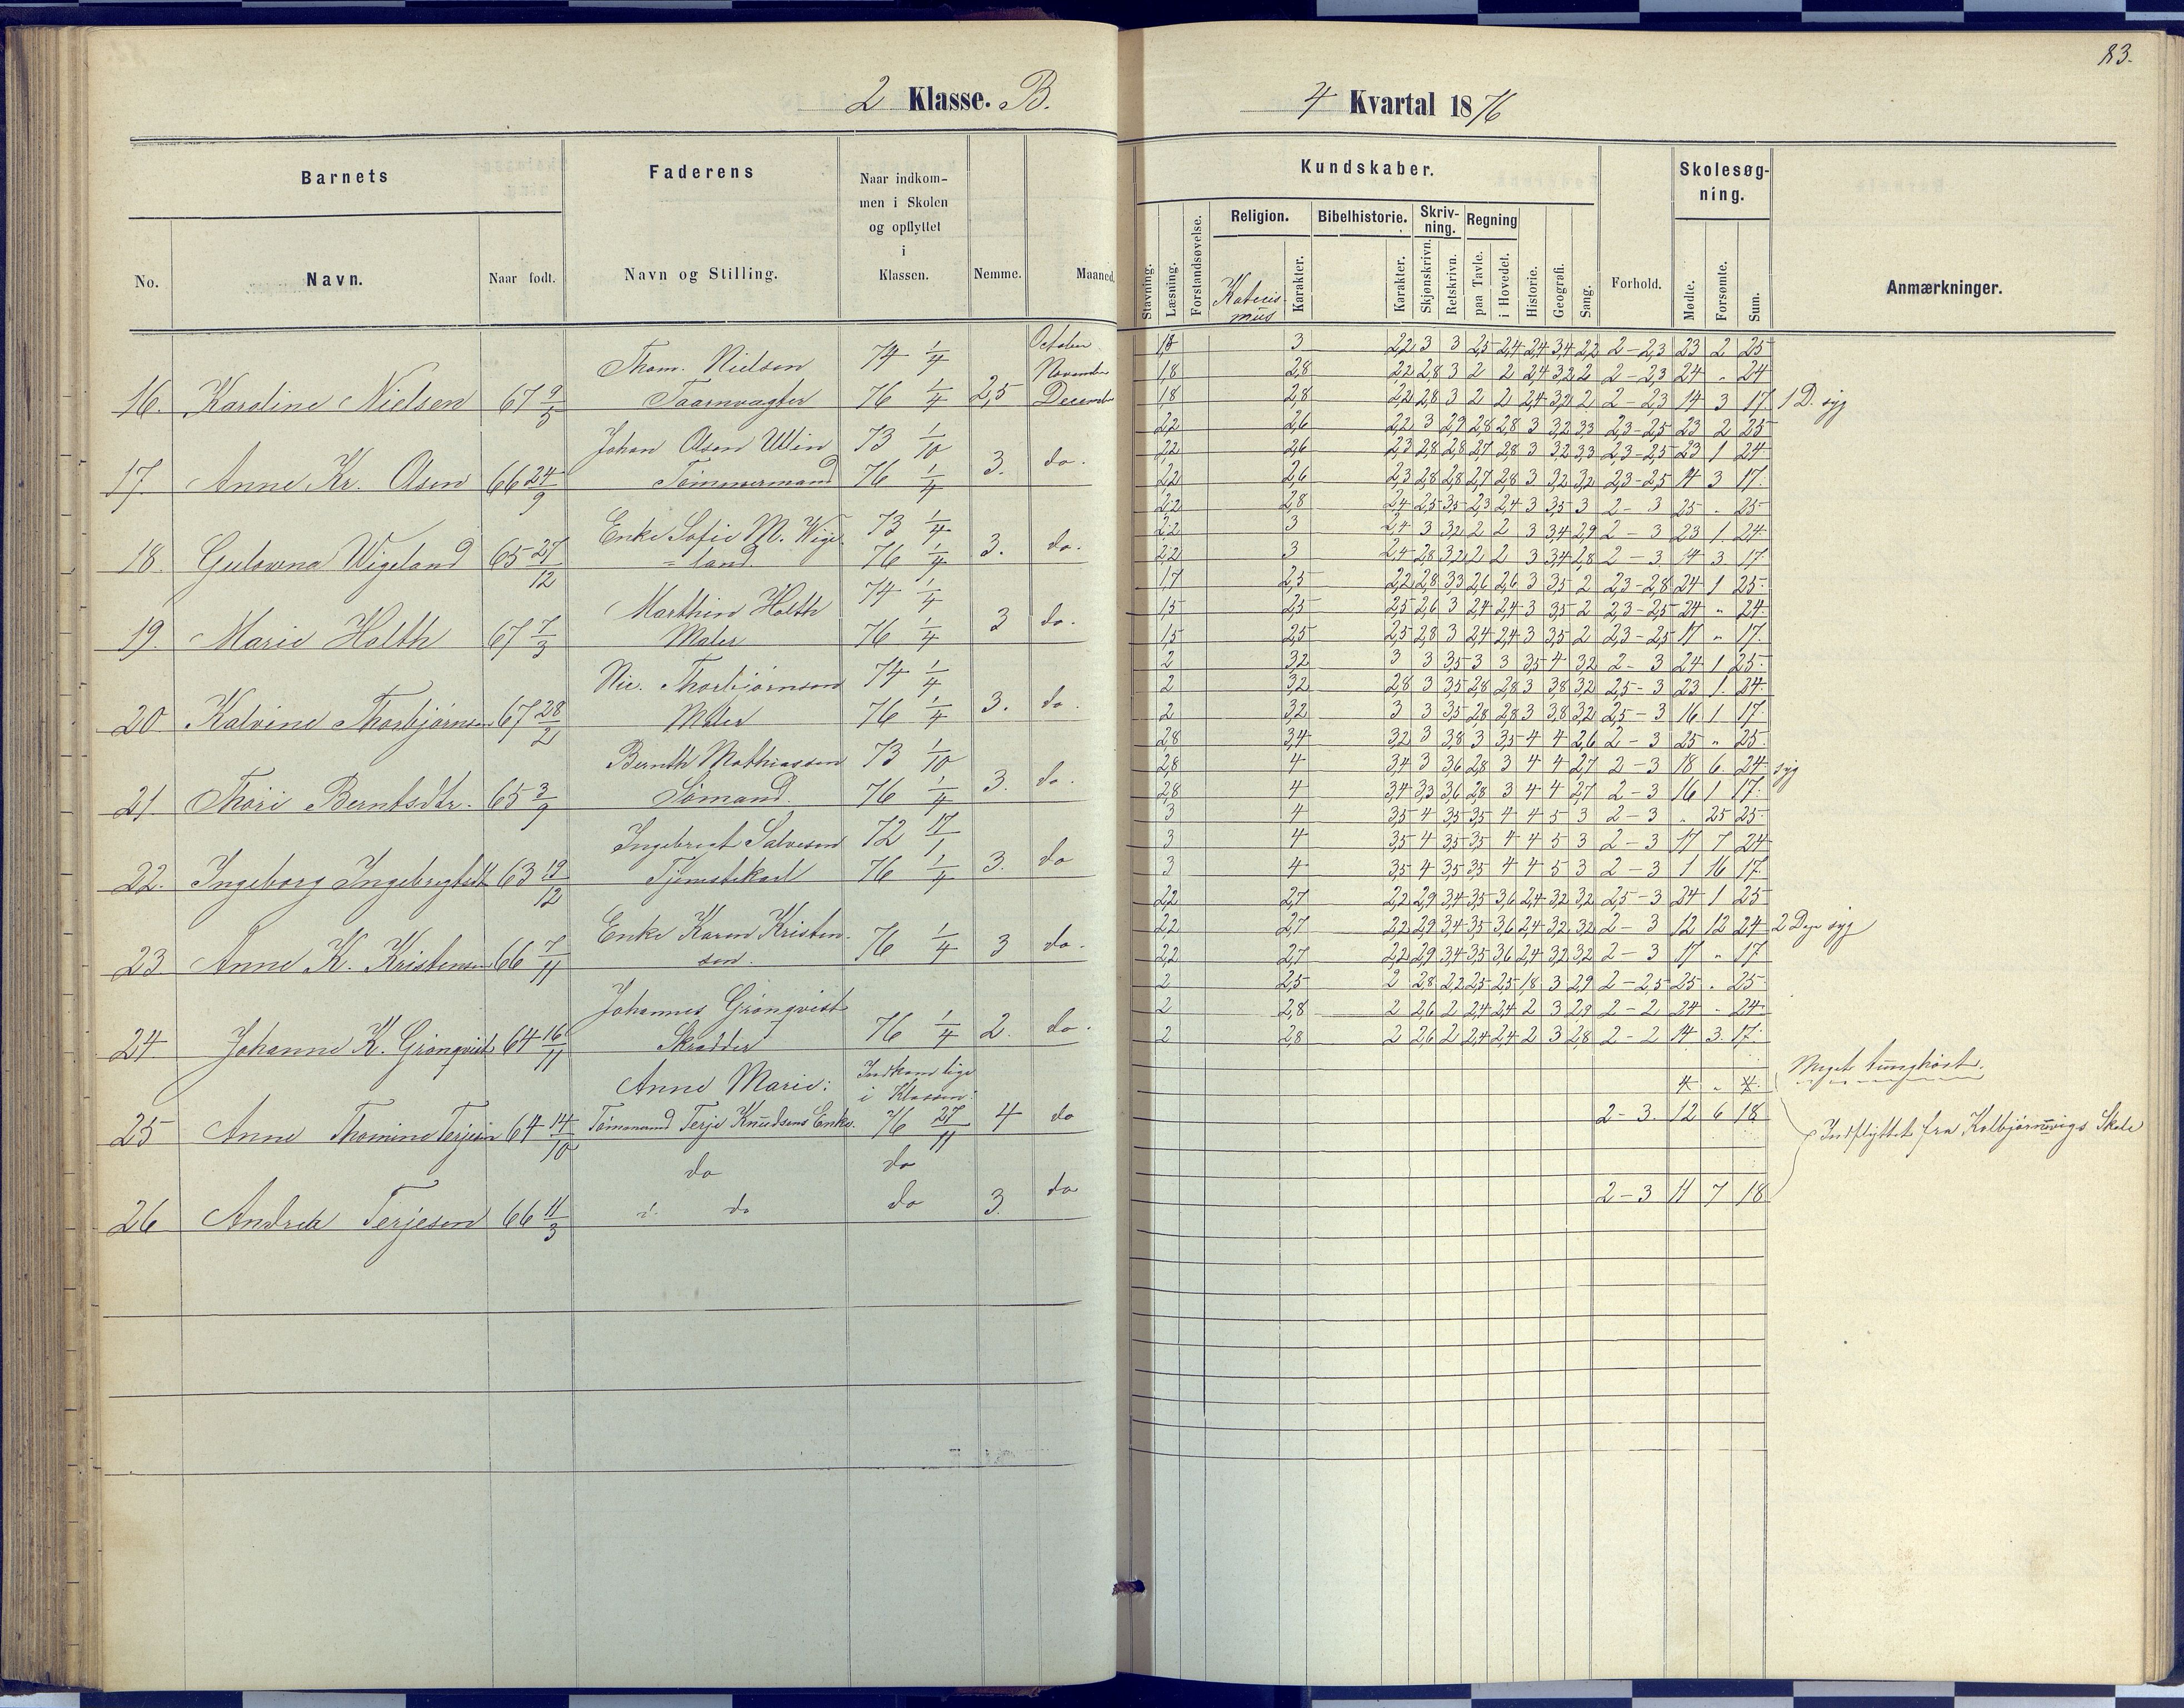 83.
2 Klasse. B.
4 Kvartal 1876
Barnets
Faderens
Naar indkom-
men i Skolen
og opflyttet
i
Klassen.
No.
Navn.
Naar født.
Navn og Stilling.
Nemme.
Maaned.
Kundskaber.
Skolesøg-
ning.
Religion.
Bibelhistorie.
Skriv-
ning.
Regning
Stavning.
Læsning.
Forstandsøvelse.
Katecis-
mus
Karakter.
Karakter.
Skjønskrivn.
Retskrivn.
paa Tavle.
i Hovedet.
Historie.
Geografi.
Sang.
Forhold.
Mødte.
Forsømte.
Sum.
Anmærkninger.
Thom. Nielsen 74 1/4 October
November
16. Karoline Nielsen 67 9/5 Taarnvagter 76 1/4 2,5 December
Johan Olsen Ullin 73 1/10
17. Anne Kr. Olsen 66 24/9 Tömmermand 76 1/4 3. do.
Enke Sofie M. Wige- 73 1/4
18. Gulovna Wigeland 65 27/12 = land. 76 1/4 3. do.
Marthin Holth 74 1/4
19. Marie Holth 67 7/3 Maler 76 1/4 3 do.
Nic. Thorbjörnsen 74 1/4
20. Kalvine Thorbjörnsen 67 28/2 Maler 76 1/4 3. do.
Bernth Mathiassen 73 1/10
21. Thöri Berntsdtr. 65 3/9 Sömand. 76 1/4 3. do.
Ingebregt Salvesen 72 17/1
22. Ingeborg Ingebregtsdt 63 19/12 Tjenestekarl 76 1/4 3. do
Enke Karen Kristen-
23. Anne K. Kristensen 66 7/11 sen. 76 1/4 3 do.
Johannes Grönqvist
24. Johanne K. Grönqvist 64 16/11 Skrædder 76 1/4 2. do.
Anne Marie: Indkom lige
i Klassen:
25 Anne Thomine Terjesen 64 14/10 Tömmermand Terje Knudsens Enke. 76 27/11 4 do
do do
26 Andrea Terjesen 66 11/3 do do 3. do
1,8 3 2,2 3 3 2,5 2,4 2,4 3,4 2,2 2-2,3 23 2 25
1,8 2,8 2,2 2,8 3 2 2 2,4 3,2 2 2-2,3 24 „ 24
1,8 2,8 2,2 2,8 3 2 2 2,4 3,2 2 2-2,3 14 3 17. 1 D. syg
2,2 2,6 2,2 3 2,9 2,8 2,8 3 3,2 3,3 2,3-2,5 23 2 25
2,2 2,6 2,3 2,8 2,8 2,7 2,8 3 3,2 3,3 2,3-2,5 23 1 24
2,2 2,6 2,3 2,8 2,8 2,7 2,8 3 3,2 3,2 2,3-2,5 14 3 17.
2,2 2,8 2,4 2,5 3,5 2,3 2,4 3 3,5 3 2-3 25 „ 25
2,2 3 2,4 3 3,2 2 2 3 3,4 2,9 2-3 23 1. 24
2,2 3 2,4 2,8 3,2 2 2 3 3,4 2,8 2-3. 14 3. 17
1,7 2,5 2,2 2,8 3,3 2,6 2,6 3 3,5 2 2,3-2,8 24 1 25
1,5 2,5 2,5 2,6 3 2,4 2,4 3 3,5 2 2,3-2,5 24 „ 24
1,5 2,5 2,5 2,8 3 2,4 2,4 3 3,5 2 2,3-2,5 17 „ 17.
2 3,2 3 3 3,5 3 3 3,5 4 3,2 2-3 24 1 25
2 3,2 2,8 3 3,5 2,8 2,8 3 3,8 3,2 2,5-3 23 1. 24
2 3,2 3 3 3,5 2,8 2,8 3 3,8 3,2 2,5-3 16 1 17
2,8 3,4 3,2 3 3,8 3 3,5 4 4 2,6 2-3 25 „ 25
2,8 4 3,4 3 3,6 2,8 3 4 4 2,7 2-3 18 6. 24. syg
2,8 4 3,4 3,3 3,6 2,8 3 4 4 2,7 2-3 16 1 17.
3 4 3,5 4 3,5 3,5 4 4 5 3 2-3 „ 25 25
3 4 3,5 4 3,5 3,5 4 4 5 3 2-3 17 7 24
3 4 3,5 4 3,5 3,5 4 4 5 3 2-3 1 16 17.
2,2 2,7 2,2 2,9 3,4 3,5 3,6 2,4 3,2 3,2 2,5-3 24 1 25
2,2 2,7 2,2 2,9 3,4 3,5 3,6 2,4 3,2 3,2 2-3 12 12 24 2 Dage syg
2,2 2,7 2,2 2,9 3,4 3,5 3,6 2,4 3,2 3,2 2-3 17 „ 17
2 2,5 2 2,8 2,2 2,5 2,5 1,8 3 2,9 2-2,5 25 „ 25
2 2,8 2 2,6 2 2,4 2,4 2 3 2,9 2-2 24 „ 24
2 2,8 2 2,6 2 2,4 2,4 2 3 2,8 2-2 14 3. 17.
Meget tunghört.
4 „ 4.
2-3. 12 6 18
Indflyttet fra Kolbjörnsvigs Skole
2-3 11 7 18